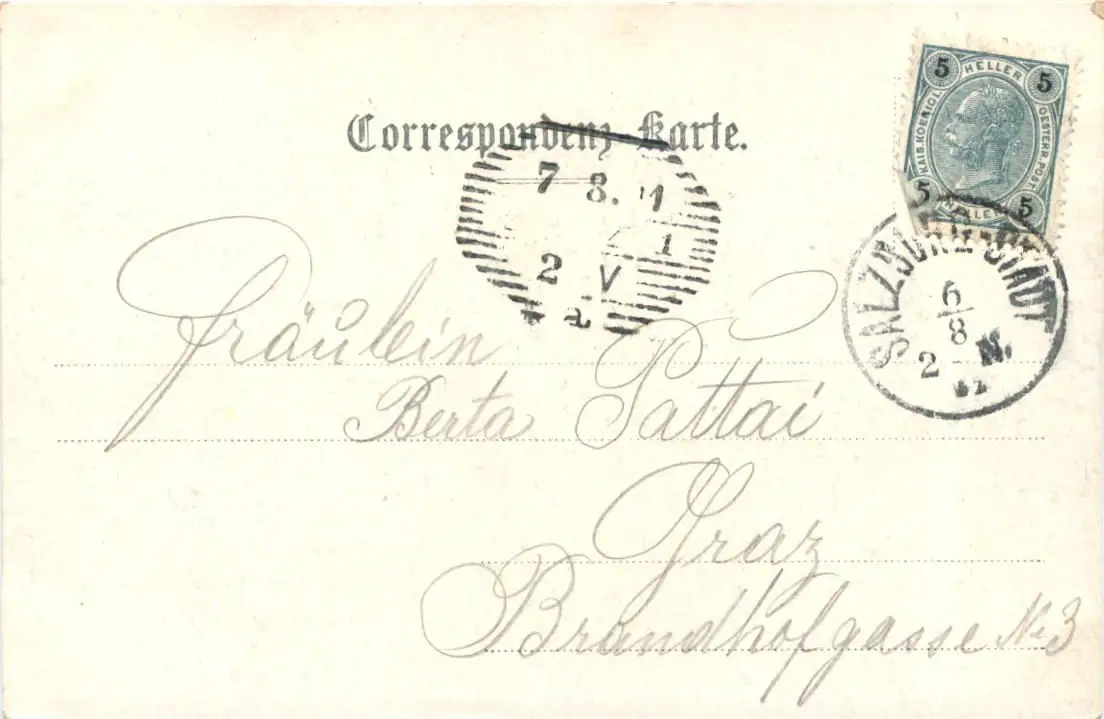 Correspondenz-Karte.
5 HELLER 5
KAIS. KOENIGL. OESTERR. POST
5 HELLER 5
7 8. 11
1
2 V
SALZBURG STADT
6
8
2 N.
Fräulein
Berta Pattai
Graz
Brandhofgasse No 3